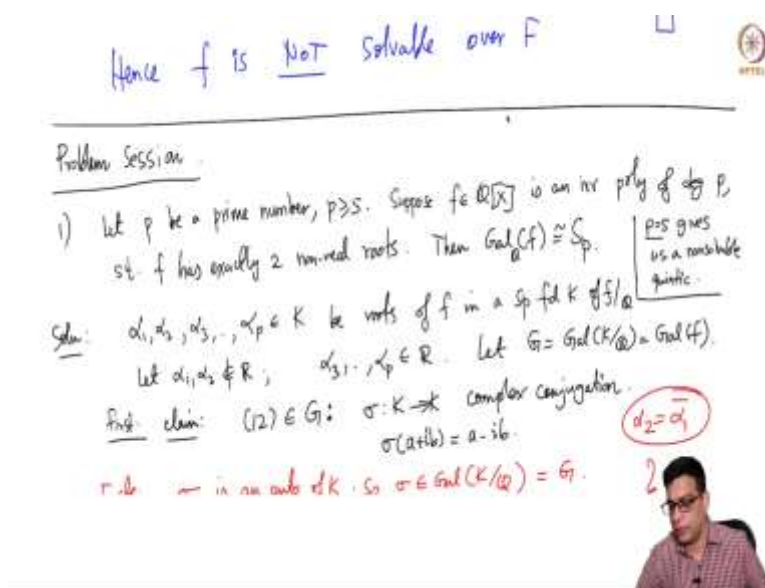 Hence f is NOT solvable over F
NPTEL
Problem Session.
1) Let p be a prime number, p≥5. Suppose f∈ℚ[X] is an irr poly of deg p,
st. f has exactly 2 non-real roots. Then Gal_ℚ(f) ≅ S_p.
p=5 gives
us a nonsolvable
quintic.
Soln: α₁, α₂, α₃, .., α_p ∈ K be roots of f in a sp fld K of f/ℚ
Let α₁, α₂ ∉ ℝ; α₃, .., α_p ∈ ℝ. Let G = Gal(K/ℚ) = Gal(f).
First claim: (12) ∈ G: σ: K → K complex conjugation.
σ(a+ib) = a-ib.
α₂ = ᾱ₁
is an auto of K. So σ ∈ Gal(K/ℚ) = G.
2